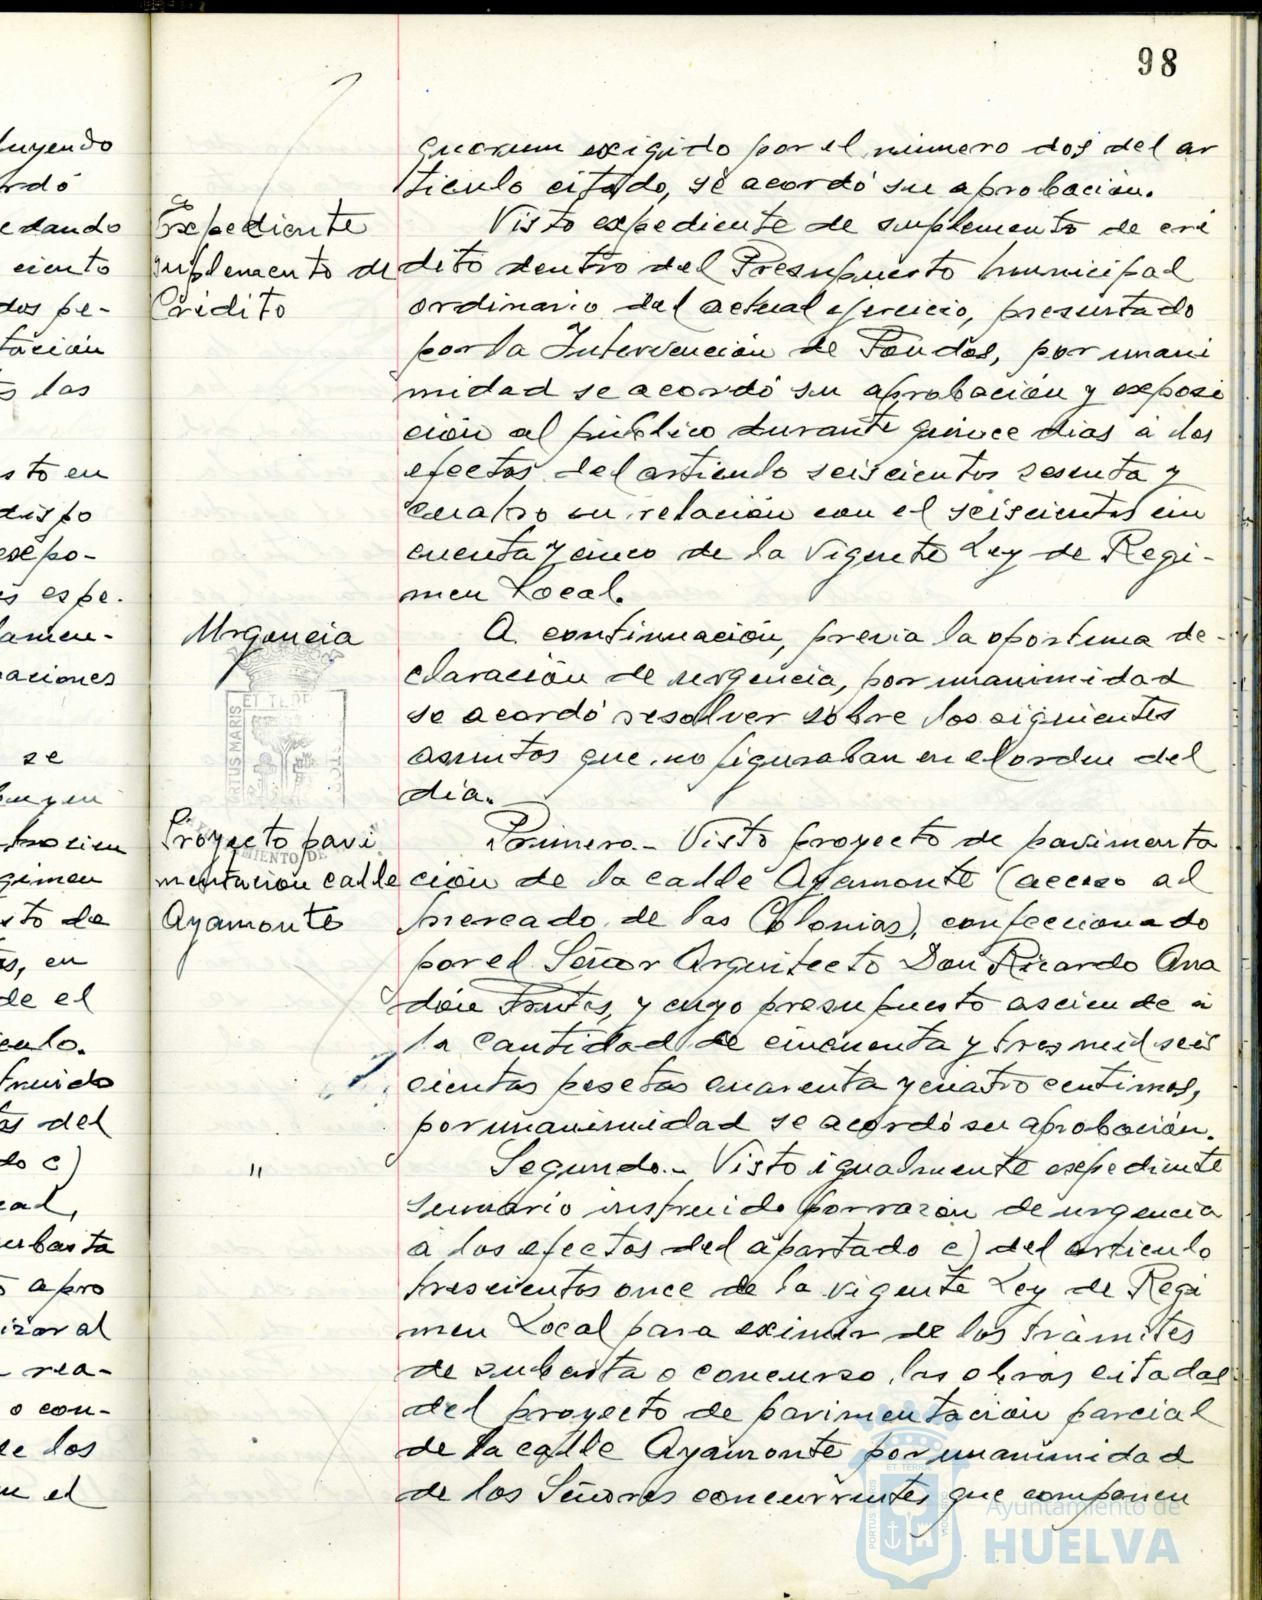 98
quorum exigido por el número dos del ar
tículo citado, se acordó su aprobación.
Expediente
suplemento de
Crédito
Visto expediente de suplemento de cré
dito dentro del Presupuesto municipal
ordinario del actual ejercicio, presentado
por la Intervención de Fondos, por unani
midad se acordó su aprobación y exposi
ción al público durante quince días á los
efectos del artículo seiscientos sesenta y
cuatro en relación con el seiscientos cin
cuenta y cinco de la vigente Ley de Regi-
men Local.
Urgencia
A continuación, previa la oportuna de-
claración de urgencia, por unanimidad
se acordó resolver sobre los siguientes
asuntos que no figuraban en el orden del
día.
Proyecto pavi
mentación calle
Ayamonte
Primero.- Visto proyecto de pavimenta
ción de la calle Ayamonte (acceso al
mercado de las Colonias), confeccionado
por el Señor Arquitecto Don Ricardo Ana
dón Frutos, y cuyo presupuesto asciende á
la cantidad de cincuenta y tres mil seis
cientas pesetas cuarenta y cuatro centimos,
por unanimidad se acordó su aprobación.
"
Segundo.- Visto igualmente expediente
sumario instruido por razón de urgencia
á los efectos del apartado c) del artículo
trescientos once de la vigente Ley de Regi
men Local para eximir de los trámites
de subasta o concurso las obras citadas
del proyecto de pavimentación parcial
de la calle Ayamonte por unanimidad
de los Señores concurrentes que componen
luyendo
rdó
edando
ciento
dos pe-
tación
s las
sto en
dispo
expo-
s espe.
lamen-
aciones
se
buyen
gimen
sto de
as, en
de el
culo.
truido
tas del
do c)
cal,
ubasta
apro
izar al
rea-
o con-
de los
el
ET TERR
PORTUS MARIS
Ayuntamiento de
HUELVA